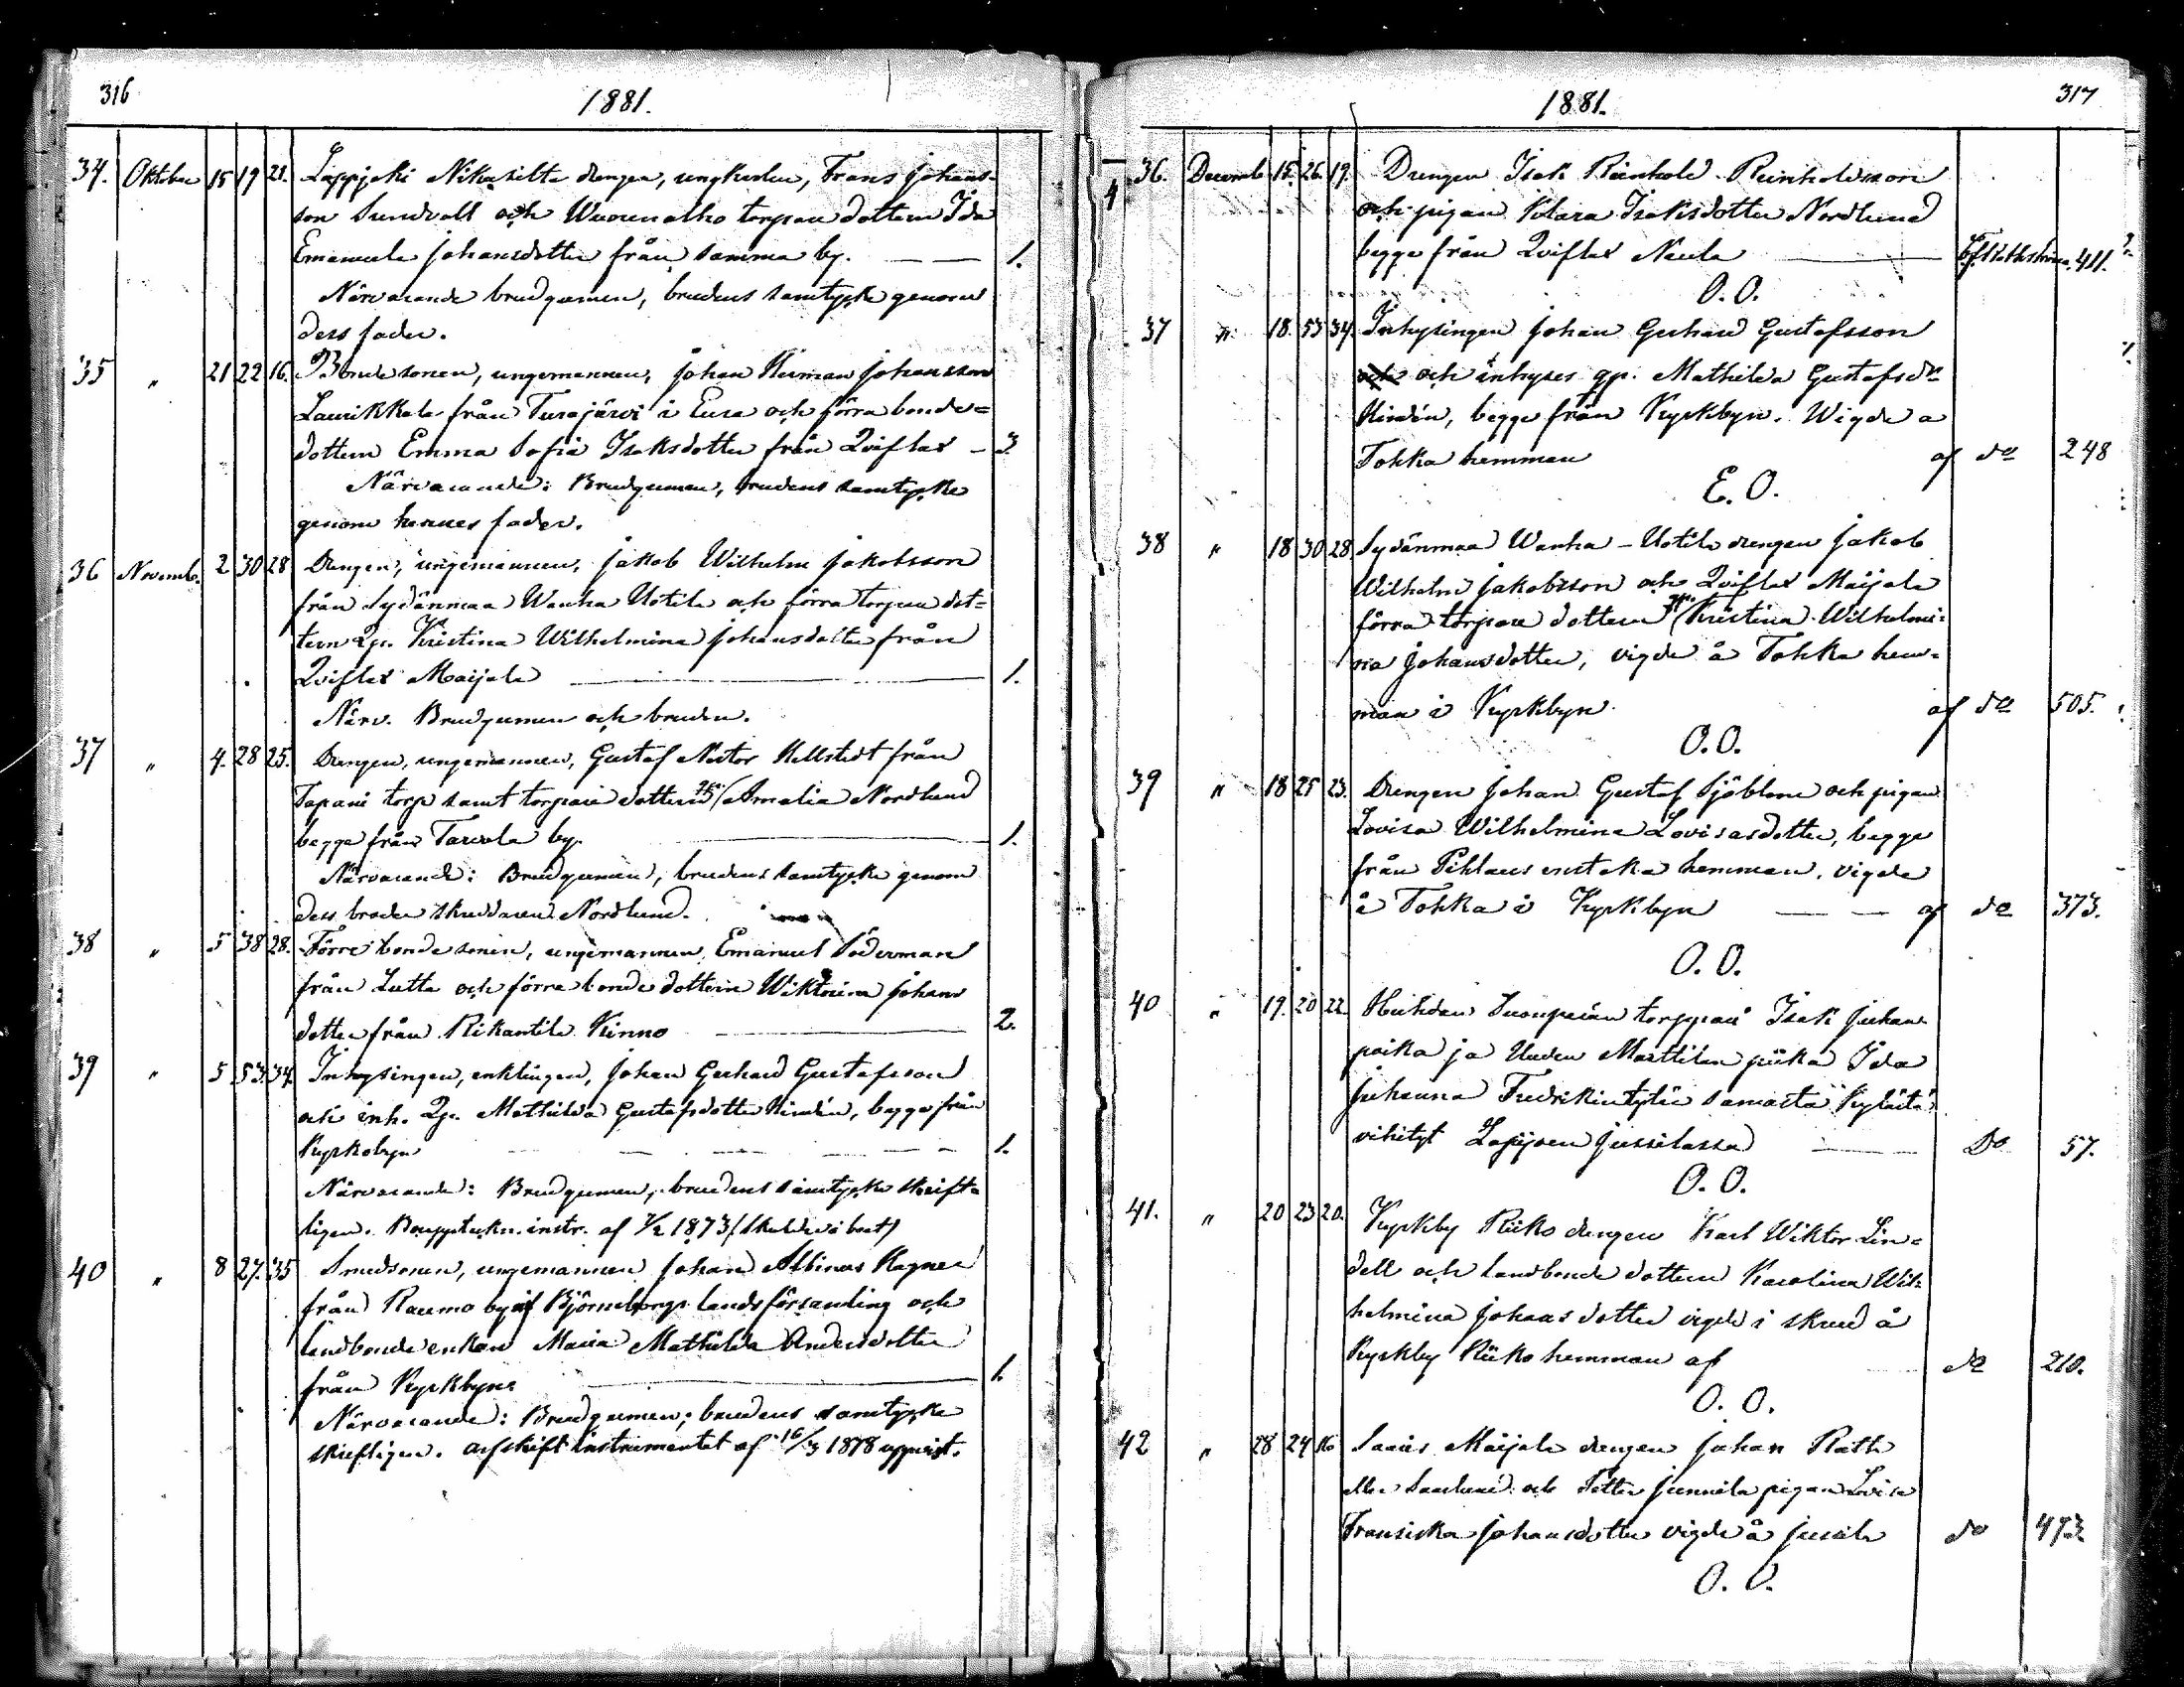 316
1881.
34. Oktober 15 19 21. Lappjoki Nikusilta drengen, ungkarlen, Frans Johans-
son Sundvall och torpare dottern Ida
Emanuela Johansdotter från samma by. — — 1.
Närvarande brudgumen, brudens samtycke genom
dess fader.
35 " 21 22 16. Bondesonen, ungemannen, Johan Herman Johansson
Laurikkala från Turajärvi i Eura och förra bonde=
dottern Emma Sofia Isaksdotter från Qviflax — 3.
Närvarande: Brudgumen, brudens samtycke
genom hennes fader.
36 Novemb. 2 30 28 Drengen, ungemannen, Jakob Wilhelm Jakobsson
från Sydänmaa Wanha Uotila och förra torpare dot=
tern Qp. Kristina Wilhelmina Johansdotter från
Qviflax Maijala — 1.
Närv. Brudgumen och bruden.
37 " 4. 28 25. Drengen, ungemannen, Gustaf Nestor Hellstedt från
Tapani torp samt torpare dottern Amalia Nordlund
begge från Tarvola by. — 1.
Närvarande: Brudgumen, brudens samtycke genom
dess broder skräddaren Nordlund.
38 " 5 38 28. Förre bonde sonen, ungemannen Emanuel Söderman
från Lutta och förra bonde dottern Wiktorina Johans
dotter från Rikantila Kinno — 2.
39 " 5 53. 34. Inhysingen, enklingen, Johan Gerhard Gustafsson
och inh. Qp. Mathilda Gustafsdotter Lindén, begge från
Kyrkobyn — — — — — 1.
Närvarande: Brudgumen, brudens samtycke skrift=
ligen. Bouppteckn. instr. af 1873 (
40 " 8 27. 35 Smedsonen, ungemannen Johan Albinus Ragner
från Raumo by af Björneborgs landsförsamling och
landbonde enkan Maria Mathilda Andersdotter
från Kyrkbyn — 1.
Närvarande: Brudgumen, brudens samtycke
skriftligen. afskift instrumentet af 16/3 1878 uppvist.
317
1881.
36. Decemb 15. 26. 19. Drengen Isak Reinhold Reinholdsson
och pigan Klara Isaksdotter Nordlund
begge från Qviflax Neula — 411.
O. O.
37 " 18. 53 34. Inhysingen Johan Gerhard Gustafsson
och och inhyses qp. Mathilda Gustafsdr
Lindén, begge från Kyrkbyn. Wigde a
Tokka hemman af do 248
E. O.
38 " 18 30 28 Sydänmaa Wanha-Uotila drengen Jakob
Wilhelm Jakobsson och Qviflax Maijala
förra torpare dottern Kristina Wilhelmi=
na Johansdotter, vigde å Tokka hem=
man i Kyrkbyn af do 505.
O. O.
39 " 18 25 23. Drengen Johan Gustaf Sjöblom och pigan
Lovisa Wilhelmina Lovisasdotter, begge
från Pihlaus hemman, vigde
å Tokka i Kyrkbyn — — af do 373.
O. O.
40 " 19. 20 22. Huhdan torppari Isak Juhan
poika ja Uuden Marttilan piika Ida
Juhanna Fredrikintytär samasta kylästä
vihityt Lapijoen Jussilassa — Do 57.
O. O.
41. " 20 23 20. Kyrkby Riiko drengen Karl Wiktor Lin=
dell och landbonde dottern Karolina Wil=
helmina Johans dotter vigde i skrud å
Kyrkby Riiko hemman af do 210.
O. O.
42 " 28 24 Maijala drengen Johan
eller och Junnila pigan Lovisa
Fransiska Johansdotter vigde å Jussila do
O. O.